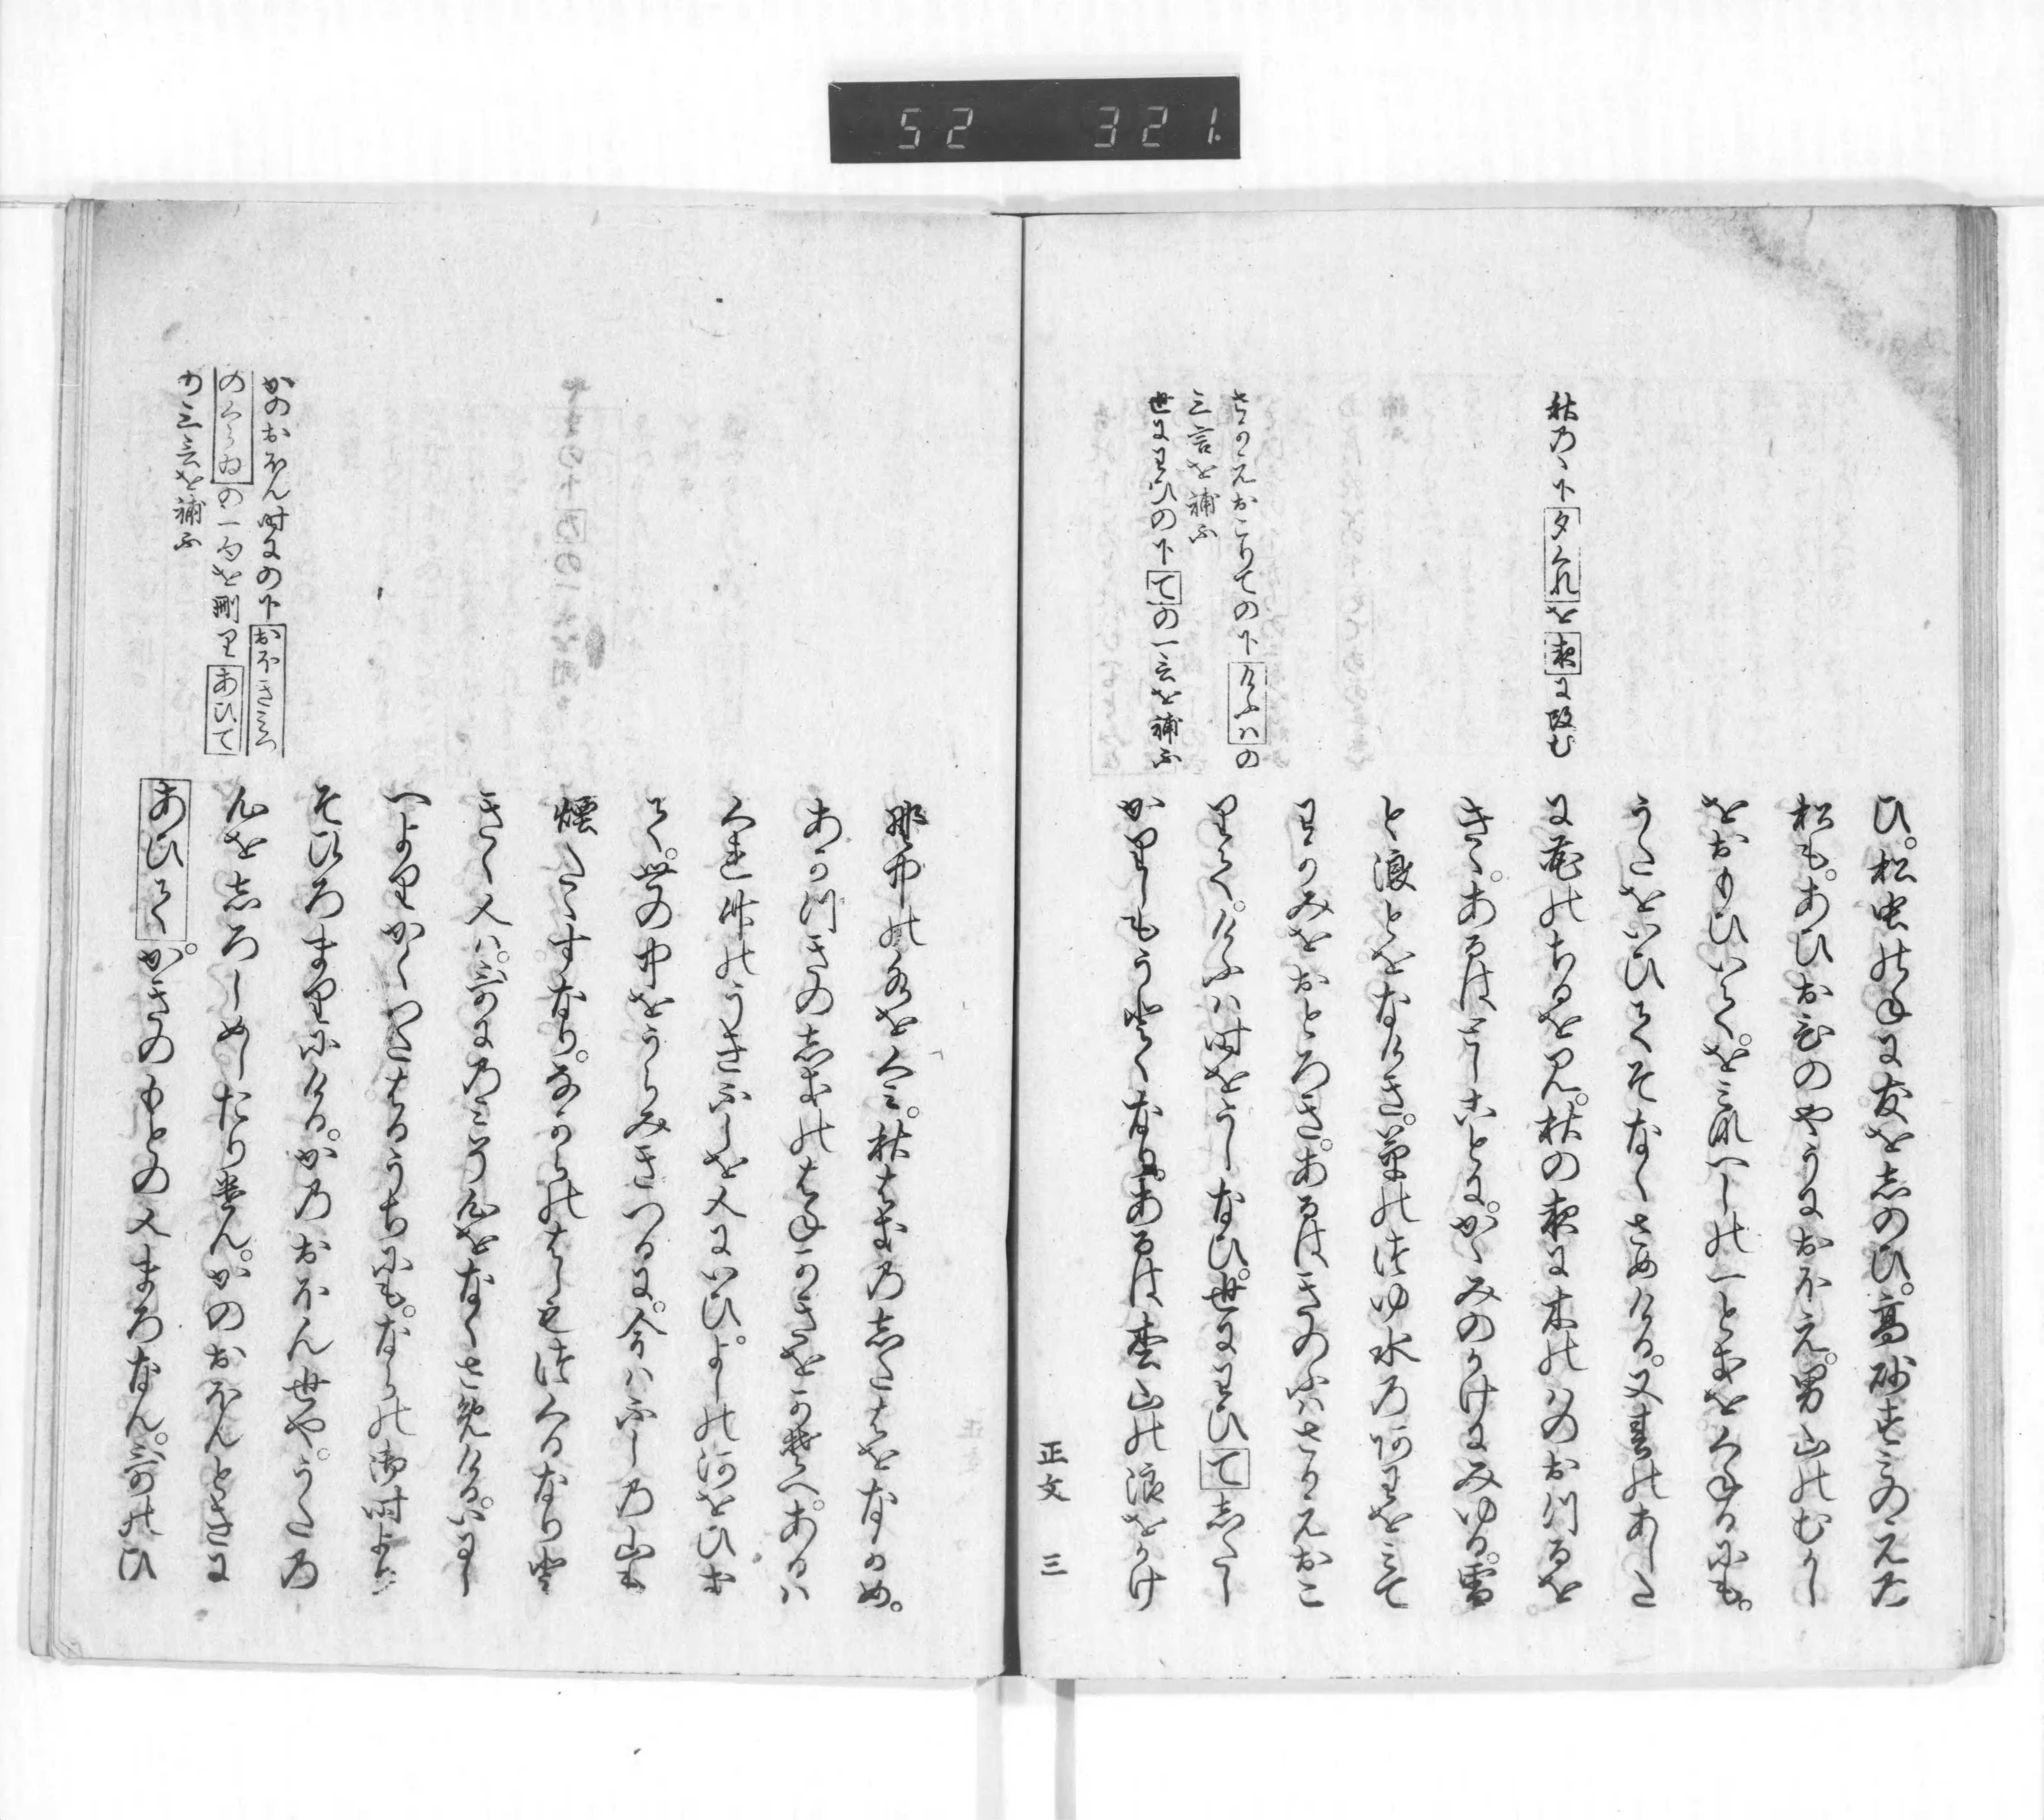 52 321.
秋の、下夕くれを夜に改む
さかえおこりての下けふハの
三言を補ふ
世にわひの下ての一言を補ふ
ひ。松虫のねに友をしのひ。高砂すみのえた
松も。あひおひのやうにおほえ。男山のむかし
をおもひいてゝ。をみなへしの一ときをくねるにも。
うたをいひてそなくさめける。又春のあした
に花のちるを見。秋の夜に木のはのおつるを
きゝ。あるはとしことに。かゝみのかけにみゆる。雪
と浪とをなけき。草のつゆ水のあわをみて
わかみをおとろき。あるはきのふハさかえおこ
りて。けふハ時をうしなひ。世にわひてしたし
かりしもうとくなり。あるは松山の浪をかけ
正文 三
野中の水をくみ。秋はきのしたはをなかめ。
あかつきのしきのはねかきをかそへ。あるハ
くれ竹のうきふしを人にいひ。よしの河をひき
て。世の中をうらみきつるに。今ハふしの山も
煙たゝすなり。なからのはしもつくるなりと
きく人ハ。哥にのミそ心をなくさめける。いにし
へよりかくつたはるうちにも。ならの御時より
そひろまりにける。かのおほん世や。うたの
心をしろしめしたりけん。かのおほんときに
あひてかきのもとの人まろなん。哥のひ
かのおほん時にの下おほきみつ
のくらゐの一句を刪りあひて
の三言を補ふ